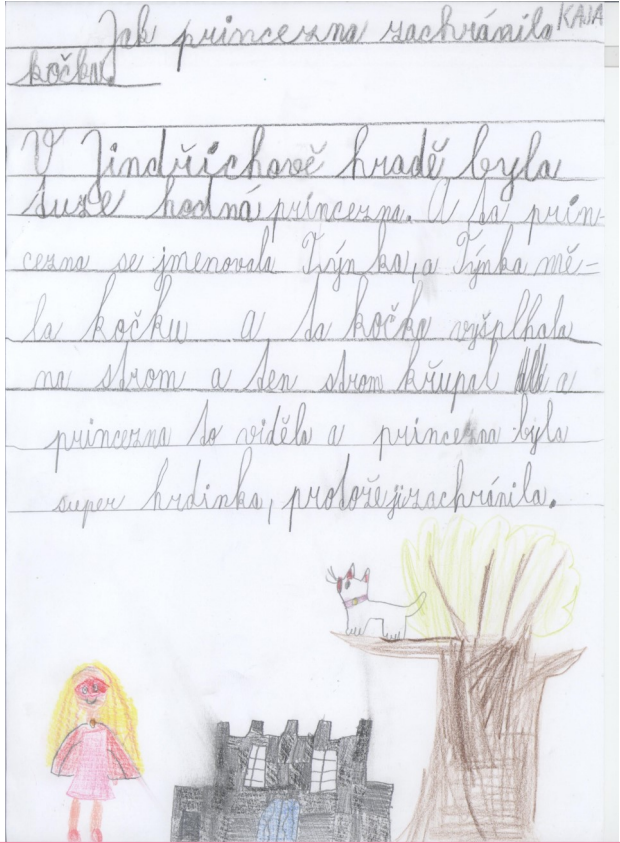 Jak princezna zachránila KAJA
kočku.
V Jindřichově hradě byla
tuze hodná princezna. A ta prin-
cezna se jmenovala Týnka, a Týnka mě-
la kočku a ta kočka vyšplhala
na strom a ten strom křupal a
princezna to viděla a princezna byla
super hrdinka, protože ji zachránila.